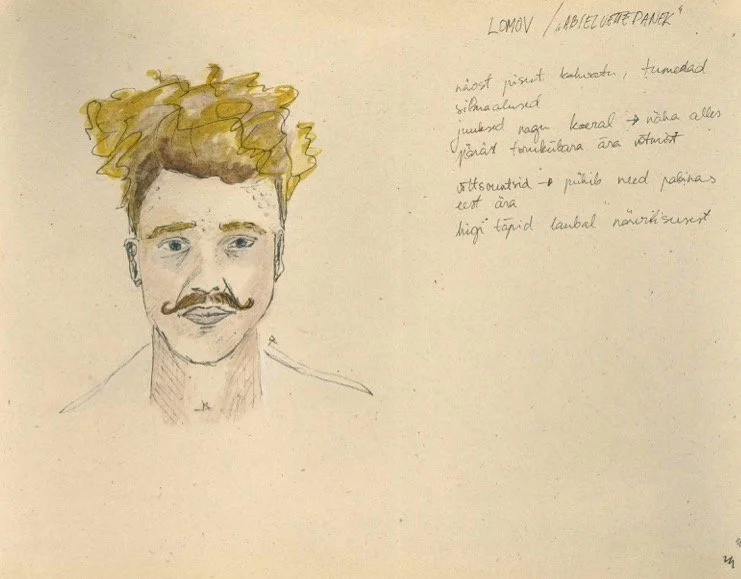 LOMOV / "ABIELUETTEPANEK"
näost pisut kahvatu, tumedad
silmaalused
juuksed nagu koeral → näha alles
pärast torukübara ära võtmist
võltsvuntsid → pühib need pabinas
eest ära
higi täpid laubal närvilisusest